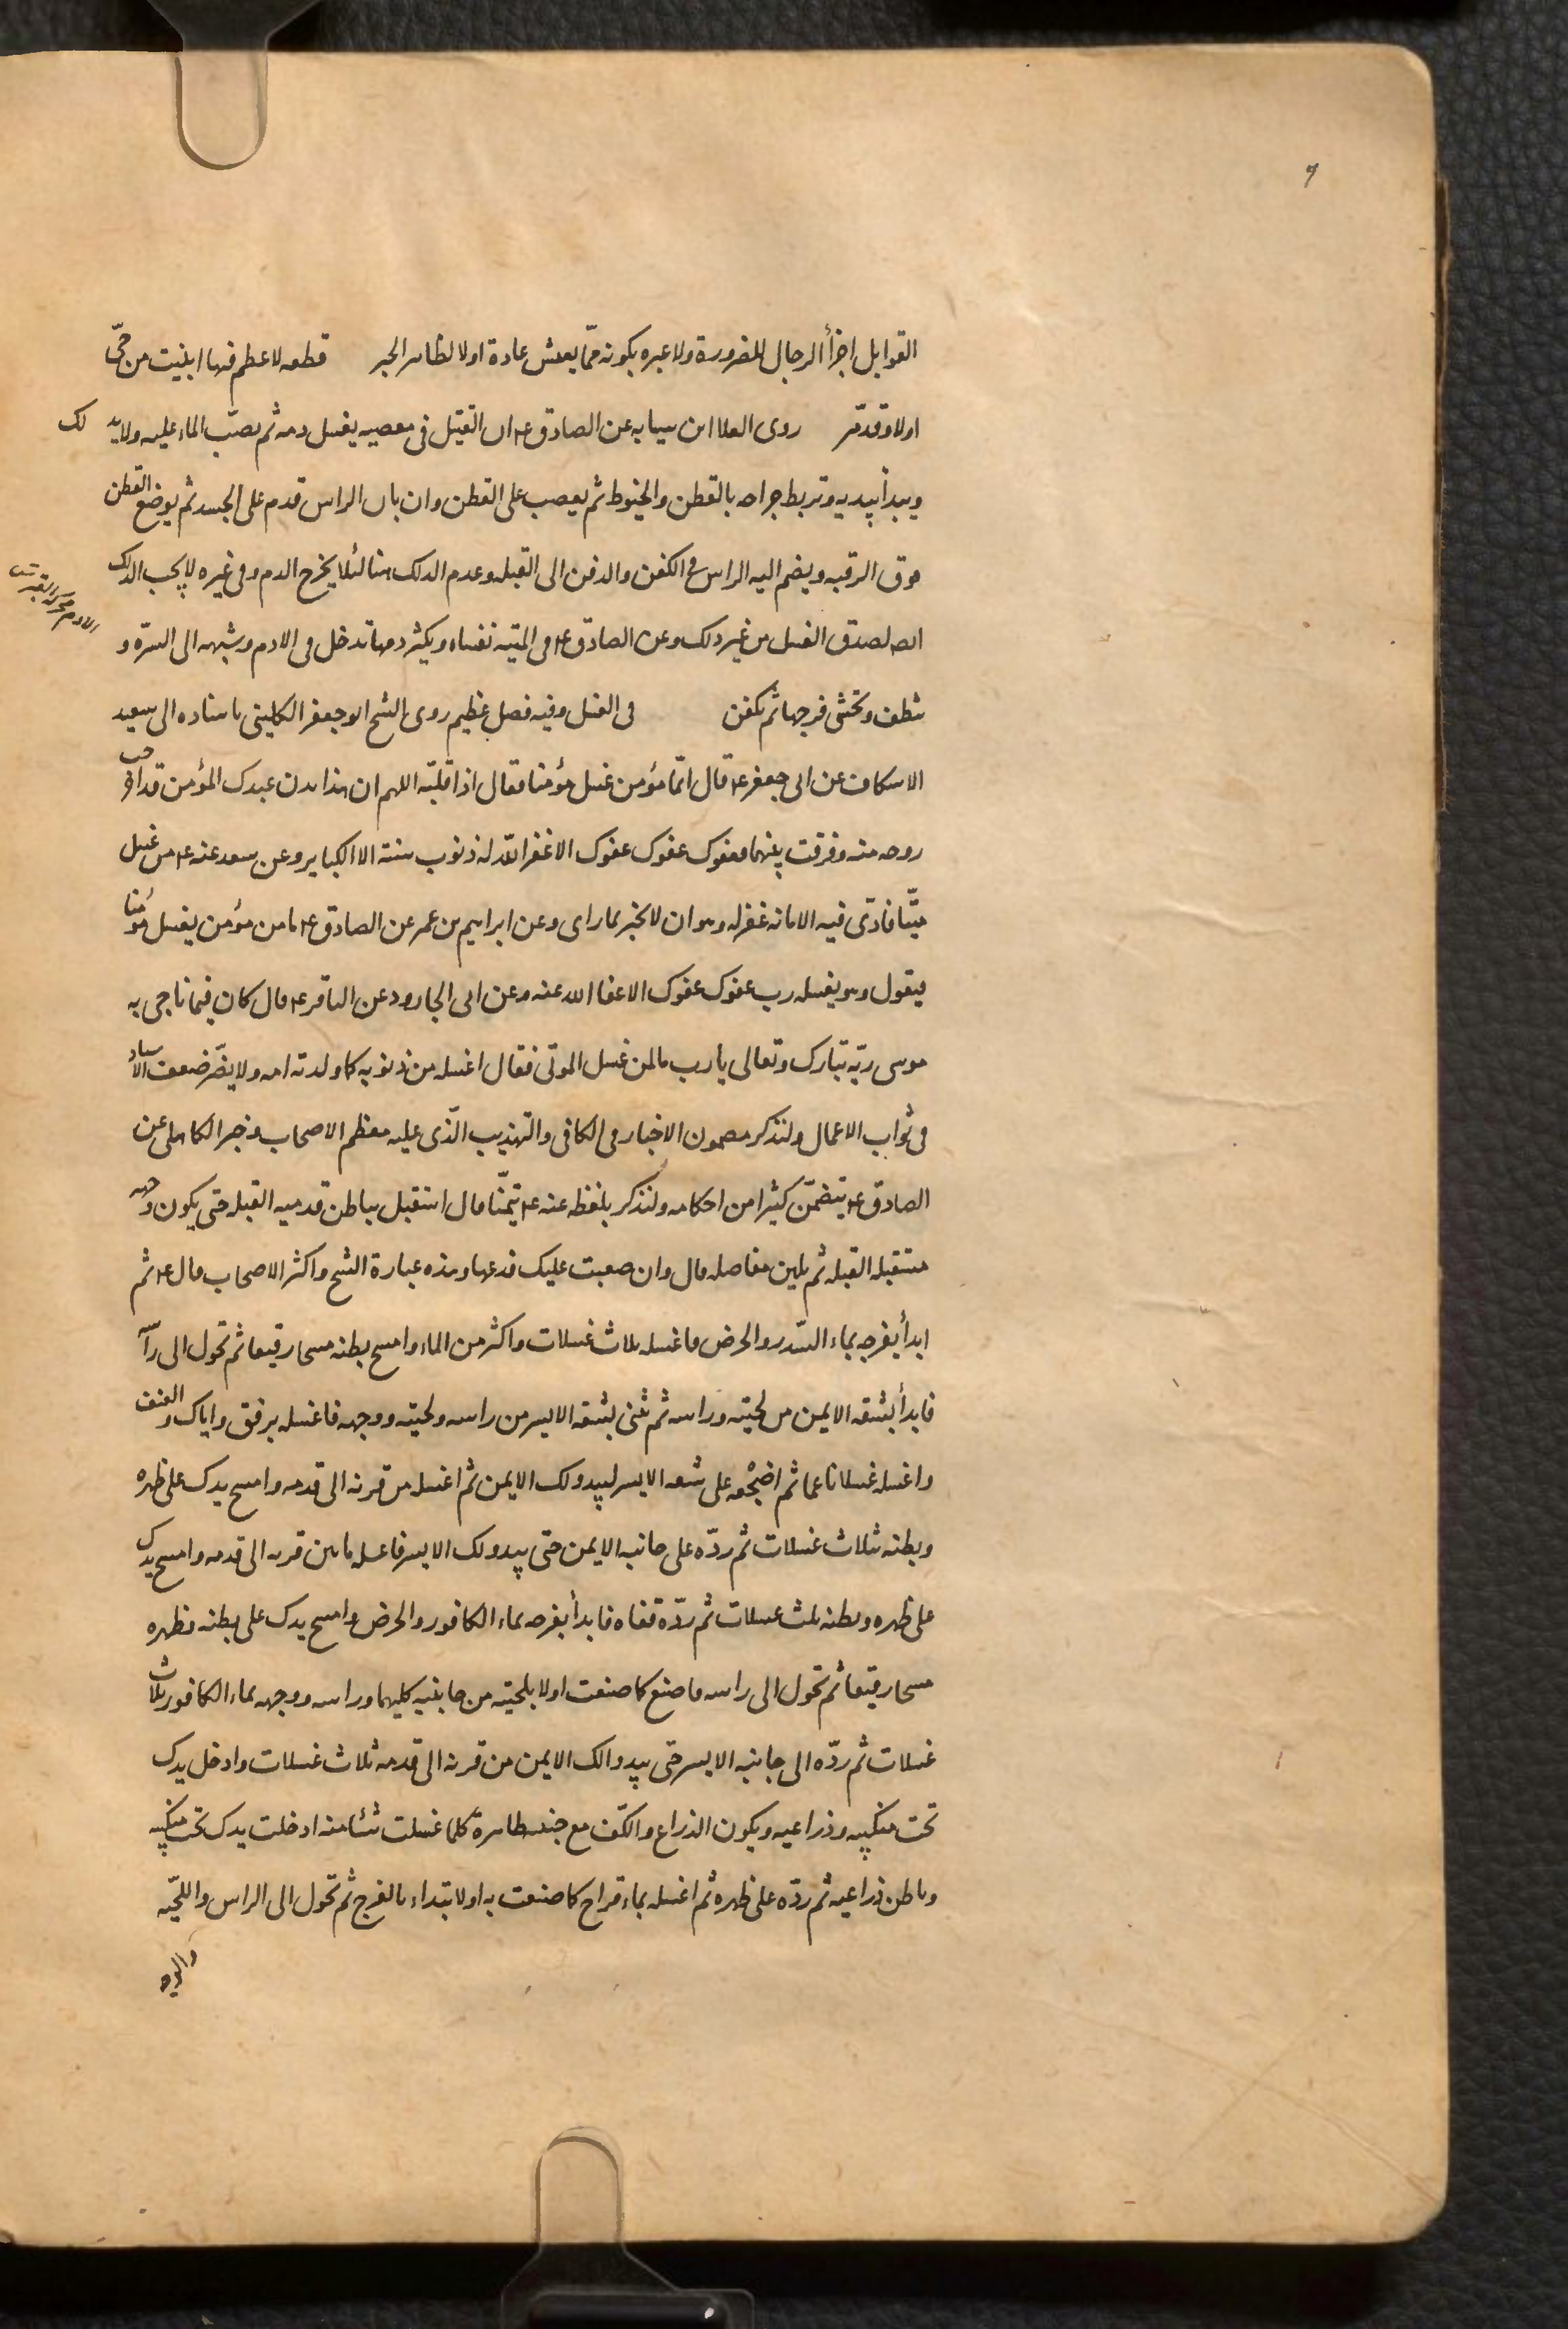 ٩
القوابل اجزأ الرجال للضرورة ولا عبره بكونه ممّا يعيش عادة اولا لظاهر الخبر قطعه لا عظم فيها ابينت من حىّ
اولا وقد مرّ روى العلا ابن سيابه عن الصادق ع ان القتيل فى معصيه يغسل دمه ثم يصبّ الماء عليه ولا يدلك
ويبدأ بيديه وتربط جراحه بالقطن والخيوط ثم يعصب على القطن وان بان الراس قدم على الجسد ثم يوضع القطن
فوق الرقبه ويضم اليه الراس فى الكفن والدفن الى القبله وعدم الدلك هنا لئلا يخرج الدم وفى غيره لا يجب الدلك
لصدق الغسل من غير دلك وعن الصادق ع فى الميته نفساء ويكثر دمها تدخل فى الادم وشبهه الى السرّه و
تنظف وتحشى فرجها ثم تكفن فى الغسل وفيه فضل عظيم روى الشيخ ابو جعفر الكلينى باسناده الى سعيد
الاسكاف عن ابى جعفر ع قال ايّما مؤمن غسل مؤمنا فقال اذا قلبّه اللهم ان هذا بدن عبدك المؤمن قد اخرجت
روحه منه وفرقت بينهما فعفوك عفوك عفوك الا غفر الله له ذنوب سنة الا الكباير وعن سعد عنه ع من غسل
ميّتا فادّى فيه الامانه غفر له وهو ان لا يخبر بما راى وعن ابراهيم بن عمر عن الصادق ع ما من مؤمن يغسل مؤمنا
فيقول وهو يغسله رب عفوك عفوك الا عفا الله عنه وعن ابى الجارود عن الباقر ع قال كان فيما ناجى به
موسى ربّه تبارك وتعالى يا رب ما لمن غسل الموتى فقال اغسله من ذنوبه كما ولدته امه ولا يضرّ ضعف الاسناد
فى ثواب الاعمال ولنذكر مضمون الاخبار فى الكافى والتهذيب الّذى عليه معظم الاصحاب وخبر الكاهلى عن
الصادق ع يتضمّن كثيرا من احكامه ولنذكر بلفظه عنه ع تيمّنا قال استقبل بباطن قدميه القبله حتى يكون وجهه
مستقبله القبله ثم يلين مفاصله قال وان صعبت عليك فدعها وهذه عبارة الشيخ واكثر الاصحاب قال ع ثم
ابدأ بفرجه بماء السّدر والحرض فاغسله ثلاث غسلات واكثر من الماء وامسح بطنه مسحا رقيقا ثم تحول الى راسه
فابدأ بشقه الايمن من لحيته وراسه ثم تثنى بشقه الايسر من راسه ولحيته ووجهه فاغسله برفق واياك والعنف
واغسله غسلا ناعما ثم اضجعه على شقه الايسر ليبدو لك الايمن ثم اغسله من قرنه الى قدمه وامسح يدك على ظهره
وبطنه ثلاث غسلات ثم ردّه على جانبه الايمن حتى يبدو لك الايسر فاغسله ما بين قرنه الى قدمه وامسح يدك
على ظهره وبطنه ثلث غسلات ثم ردّه قفاه فابدأ بفرجه بماء الكافور والحرض وامسح يدك على بطنه وظهره
مسحا رقيقا ثم تحول الى راسه فاصنع كما صنعت اولا بلحيته من جانبيه كليهما وراسه ووجهه بماء الكافور ثلاث
غسلات ثم ردّه الى جانبه الايسر حتى يبدو الك الايمن من قرنه الى قدمه ثلاث غسلات وادخل يدك
تحت منكبيه وذراعيه ويكون الذراع والكّف مع جنبه طاهرة كلما غسلت شيئا منه ادخلت يدك تحت منكبيه
وباطن ذراعيه ثم ردّه على ظهره ثم اغسله بماء قراح كما صنعت به اولا تبتداء بالفرج ثم تحول الى الراس واللحيّه
والوجه